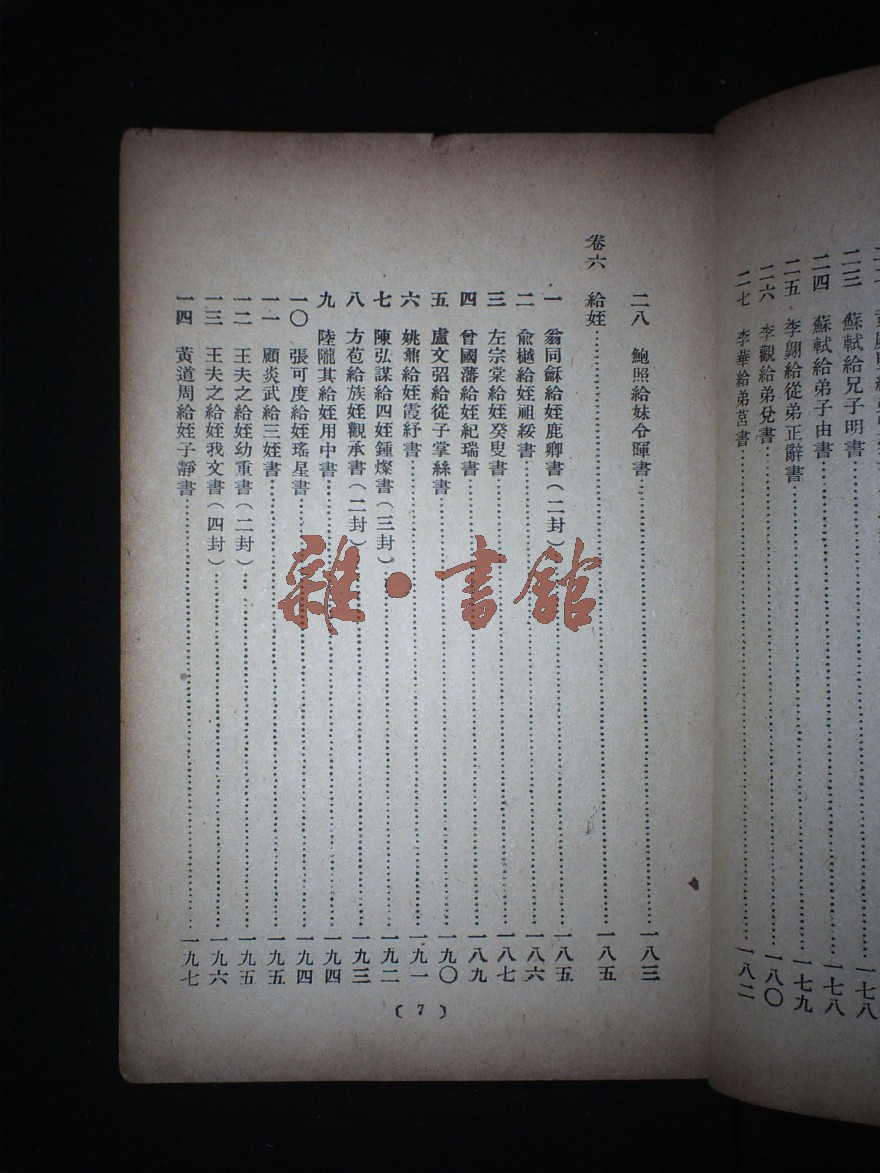 二三 蘇軾給兄子明書……一七八
二四 蘇軾給弟子由書……一七八
二五 李翺給從弟正辭書……一七九
二六 李觀給弟兌書……一八〇
二七 李華給弟莒書……一八二
二八 鮑照給妹令暉書……一八三
卷六 給姪……一八五
一 翁同龢給姪鹿卿書(二封)……一八五
二 俞樾給姪祖綏書……一八六
三 左宗棠給姪癸叟書……一八七
四 曾國藩給姪紀瑞書……一八九
五 盧文弨給從子掌絲書……一九〇
六 姚鼐給姪霞紓書……一九一
七 陳弘謀給四姪鍾燦書(三封)……一九二
八 方苞給族姪觀承書(二封)……一九三
九 陸隴其給姪用中書……一九四
一〇 張可度給姪瑤星書……一九四
一一 顧炎武給三姪書……一九五
一二 王夫之給姪幼重書(二封)……一九五
一三 王夫之給姪我文書(四封)……一九六
一四 黃道周給姪子靜書……一九七
(7)
雜·書館